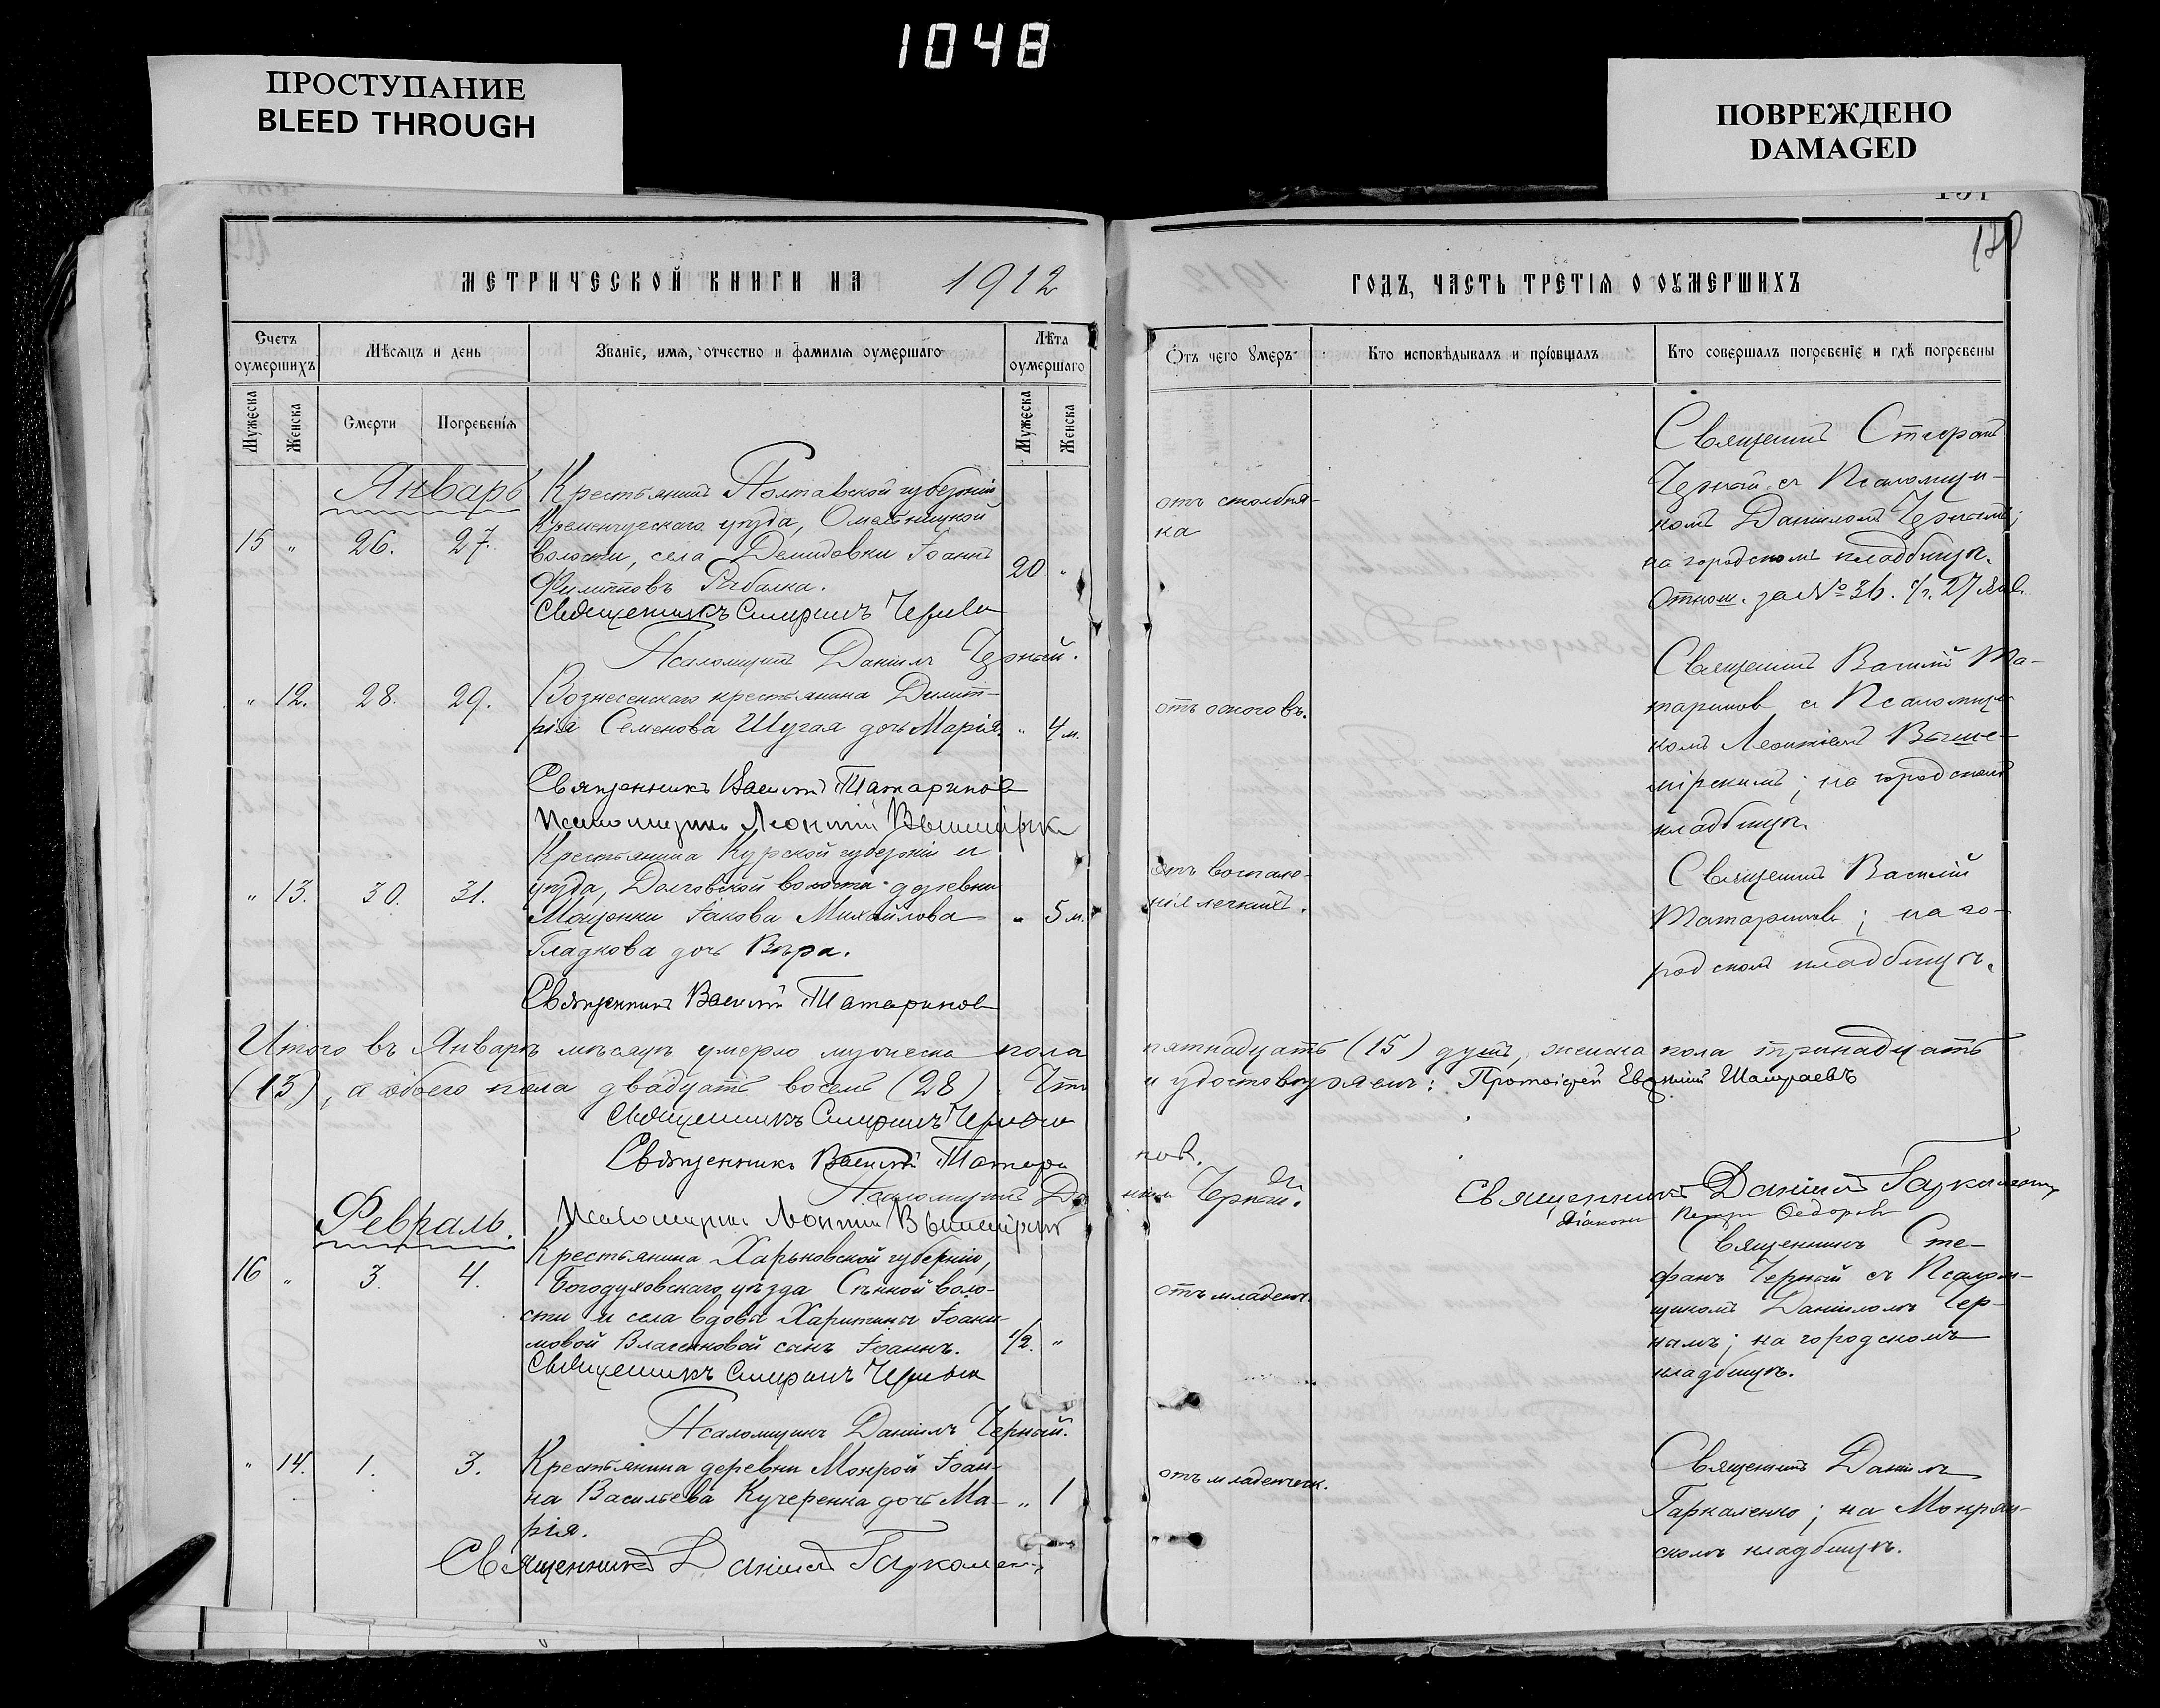 1048
ПРОСТУПАНИЕ
BLEED THROUGH
ПОВРЕЖДЕНО
DAMAGED
МЕТРИЧЕСКОЙ КНИГИ НА 1912
ГОДЪ, ЧАСТЬ ТРЕТІѦ О ОУМЕРШИХЪ
Счетъ оумершихъ
Мѣсѧцъ и день
Званіе, имѧ, отчество и фамиліѧ оумершаго
Лѣта оумершаго
Отъ чего умеръ
Кто исповѣдывалъ и пріобщалъ
Кто совершалъ погребеніе и гдѣ погребены
Мужеска
Женска
Смерти
Погребеніѧ
Мужеска
Женска
Январь
15 " 26. 27.
Крестьянинъ Полтавской губерніи
Кременчугскаго уѣзда, Омельницкой
волости, села Демидовки Іоаннъ
Филипповъ Рыбалка.
20 "
Священникъ Стефанъ Черный
Псаломщикъ Даніилъ Черный.
отъ столбня-
ка
Священникъ Стефанъ
Черный съ Псаломщи-
комъ Даніиломъ Чернымъ;
на городскомъ кладбищѣ.
Отнош. за № 36. 27 Янв.
" 12. 28. 29.
Вознесенскаго крестьянина Димит-
рія Семенова Шугая дочь Марія.
" 4 м.
Священникъ Василій Татариновъ
Псаломщикъ Леонтій Вышемірск
отъ
Священникъ Василій Та-
тариновъ съ Псаломщи-
комъ Леонтіемъ Выше-
мірскимъ; на городскомъ
кладбищѣ.
" 13. 30. 31.
Крестьянина Курской губерніи и
уѣзда, Долговской волости деревни
Іакова Михайлова
Гладкова дочь Вѣра.
" 5 м.
Священникъ Василій Татариновъ
отъ воспале-
нія легкихъ.
Священникъ Василій
Татариновъ; на го-
родскомъ кладбищѣ.
Итого въ Январѣ мѣсяцѣ умерло мужеска пола пятнадцать (15) душъ, женска пола тринадцать
(13), а обоего пола двадцать восемь (28). Что и удостовѣряемъ: Протоіерей Евѳимій
Священникъ Стефанъ Черный
Священникъ Василій Татаринов.
Псаломщикъ Даніилъ Черный.
Священникъ Даніилъ Гаркаленко
Псаломщикъ Леонтій Вышемірск
Діаконъ Петръ Ѳедоровъ
Февраль.
16 " 3. 4.
Крестьянина Харьковской губерніи,
Богодуховскаго уѣзда Сѣнной воло-
сти и села вдовы Харитины Іоаки-
мовой Власенковой сынъ Іоаннъ.
1/2. "
Священникъ Стефанъ Черный
Псаломщикъ Даніилъ Черный.
отъ младенч.
Священникъ Сте-
фанъ Черный съ Псалом-
щикомъ Даніиломъ Чер-
нымъ; на городскомъ
кладбищѣ.
" 14. 1. 3.
Крестьянина деревни Мокрой Іоан-
на Васильева Кучеренка дочь Ма-
рія.
" 1
Священникъ Даніилъ Гаркаленко
отъ младенческ.
Священникъ Даніилъ
Гаркаленко; на Мокрян-
скомъ кладбищѣ.